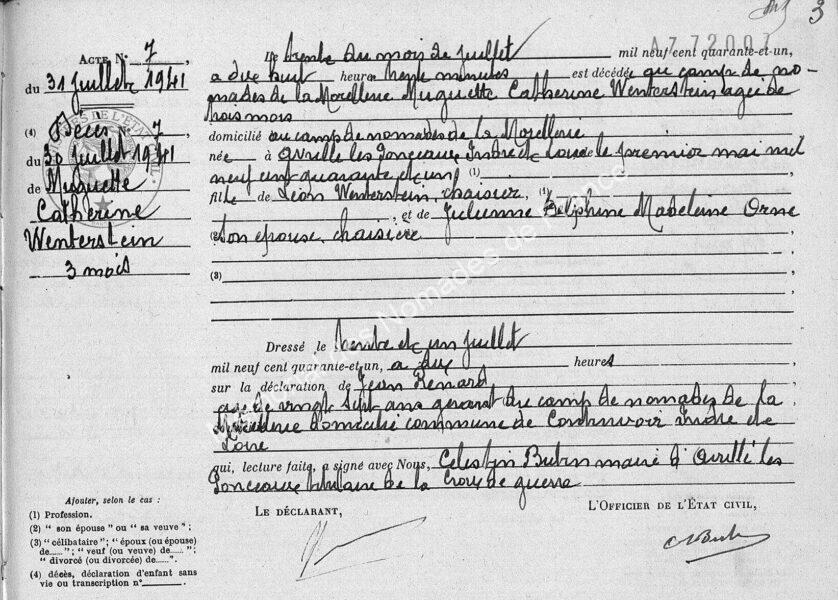 3
A 7 72007
ACTE N° 7
du 31 Juillet 1941
(4) Décès N° 7
du 30 Juillet 1941
de Muguette
Catherine
Wenterstein
3 mois
Le trente du mois de juillet mil neuf cent quarante-et-un,
a dix huit heures trente minutes est décédée au camp de no-
mades de la Morellerie Muguette Catherine Wenterstein agée de
trois mois
domicilié au camp de nomades de la Morellerie
née à Avrillé les Ponceaux Indre et Loire le premier mai mil
neuf cent quarante et un (1)
fille de Léon Wenterstein, chaisier, (1)
et de Julienne Delphine Madeleine Orne
(2) son épouse, chaisière
(3)
Dressé le trente et un juillet
mil neuf cent quarante-et-un, a dix heures
sur la déclaration de Jean Renard
agé de vingt sept ans gérant du camp de nomades de la
Morellerie domicilié commune de Continvoir Indre et
Loire
qui, lecture faite, a signé avec Nous, Célestin Bubin maire d'Avrillé les
Ponceaux titulaire de la Croix de guerre
LE DÉCLARANT,
L'OFFICIER DE L'ÉTAT CIVIL,
Ajouter, selon le cas :
(1) Profession.
(2) " son épouse " ou " sa veuve " ;
(3) " célibataire " ; " époux (ou épouse)
de...... " ; " veuf (ou veuve) de...... " ;
" divorcé (ou divorcée) de...... ".
(4) décès, déclaration d'enfant sans
vie ou transcription n°
Nomades de France